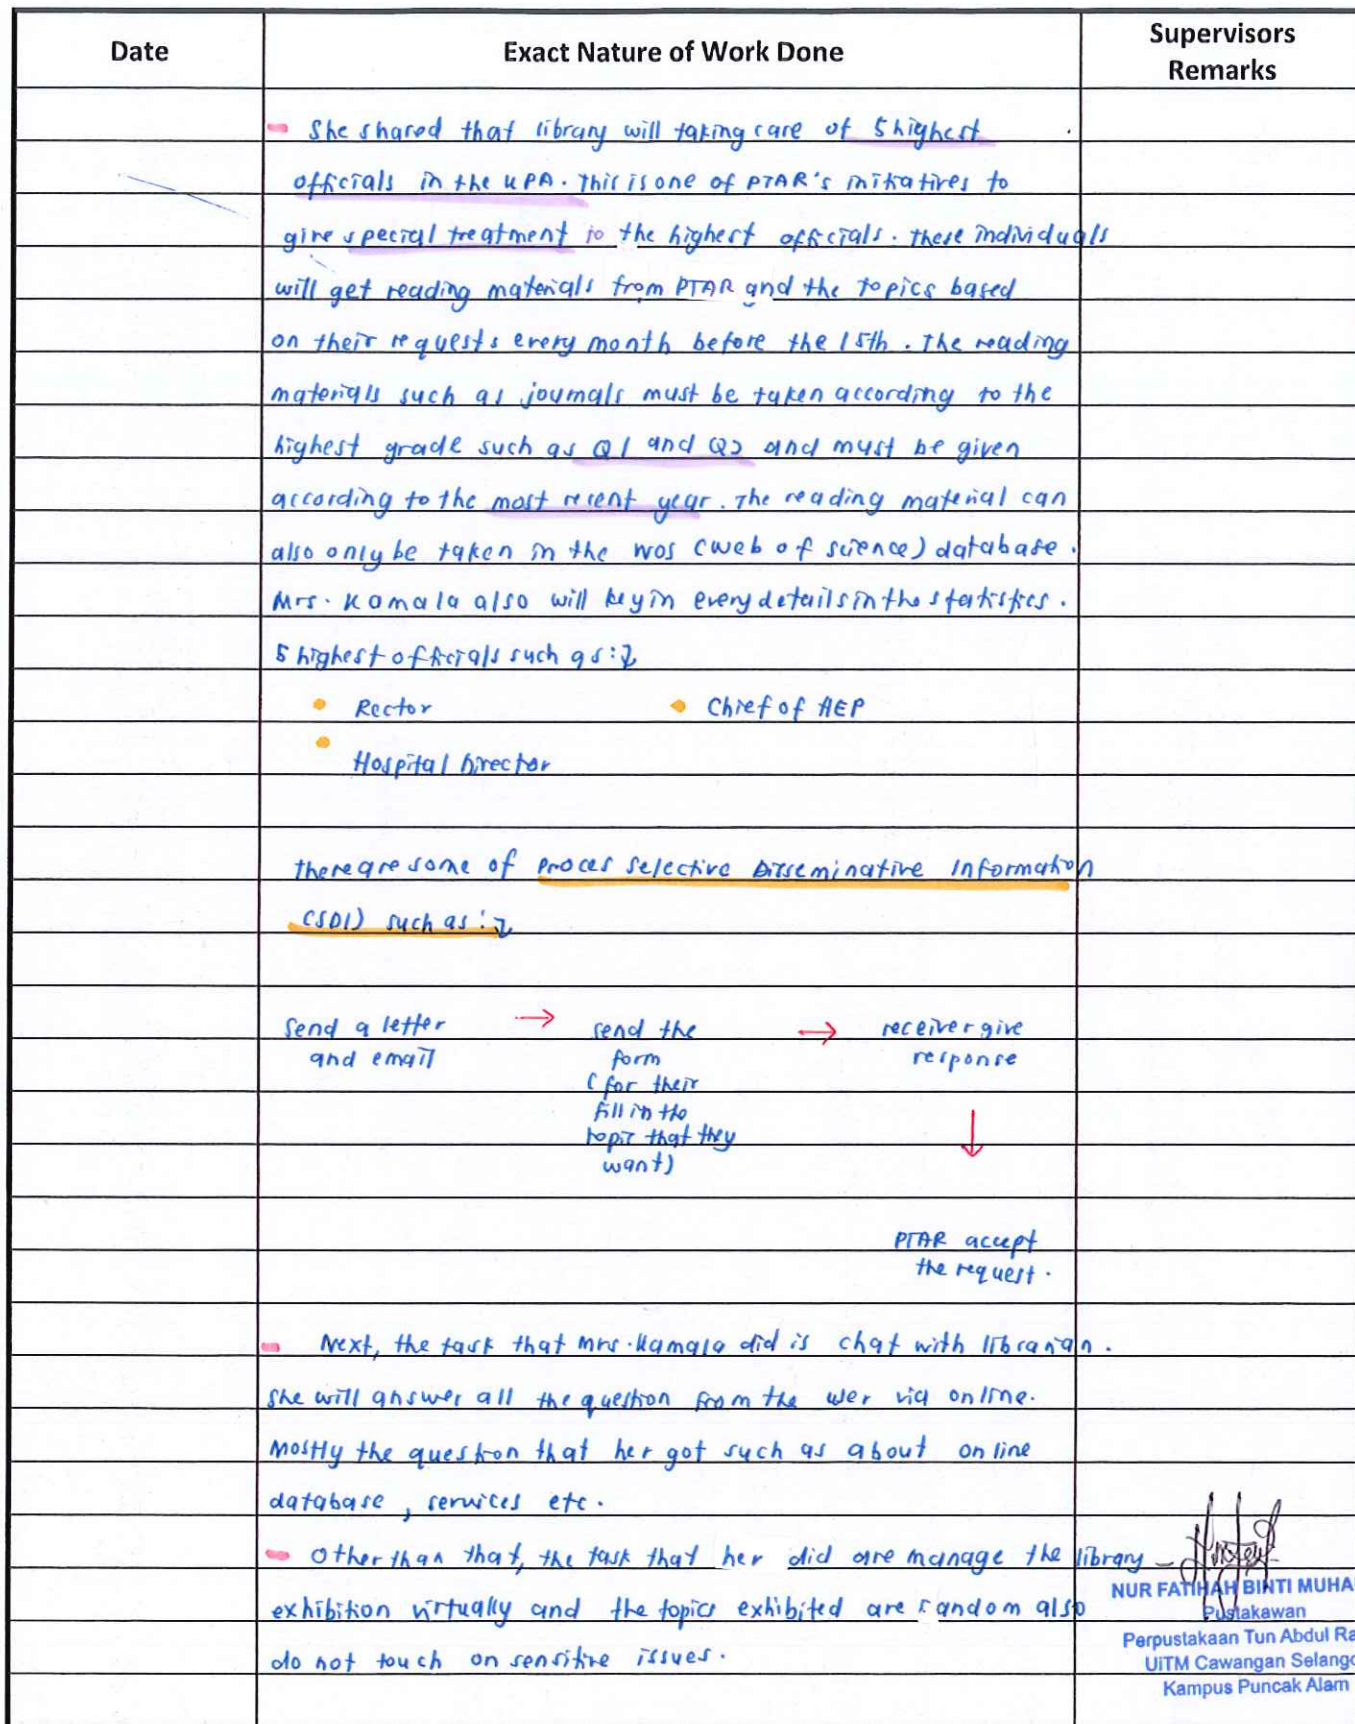 Date
Exact Nature of Work Done
Supervisors
Remarks
- She shared that library will taking care of 5 highest
officials in the UPA. This is one of PTAR's initiatives to
give special treatment to the highest officials. These individuals
will get reading materials from PTAR and the topics based
on their requests every month before the 15th. The reading
materials such as journals must be taken according to the
highest grade such as Q1 and Q2 and must be given
according to the most recent year. The reading material can
also only be taken in the WOS (web of science) database.
Mrs. Kamala also will key in every details in the statistics.
5 highest officials such as:
• Rector
• Chief of AEP
• Hospital Director
there are some of Proces Selective Disseminative Information
(SDI) such as:
send a letter
and email
→
send the
form
(for their
fill in the
topic that they
want)
→
receiver give
response
↓
PTAR accept
the request.
- Next, the task that Mrs. Kamala did is chat with librarian.
She will answer all the question from the user via online.
Mostly the question that her got such as about online
database, services etc.
- Other than that, the task that her did are manage the library
exhibition virtually and the topics exhibited are random also
do not touch on sensitive issues.
NUR FATIHAH BINTI MUHA
Pustakawan
Perpustakaan Tun Abdul Ra
UiTM Cawangan Selango
Kampus Puncak Alam